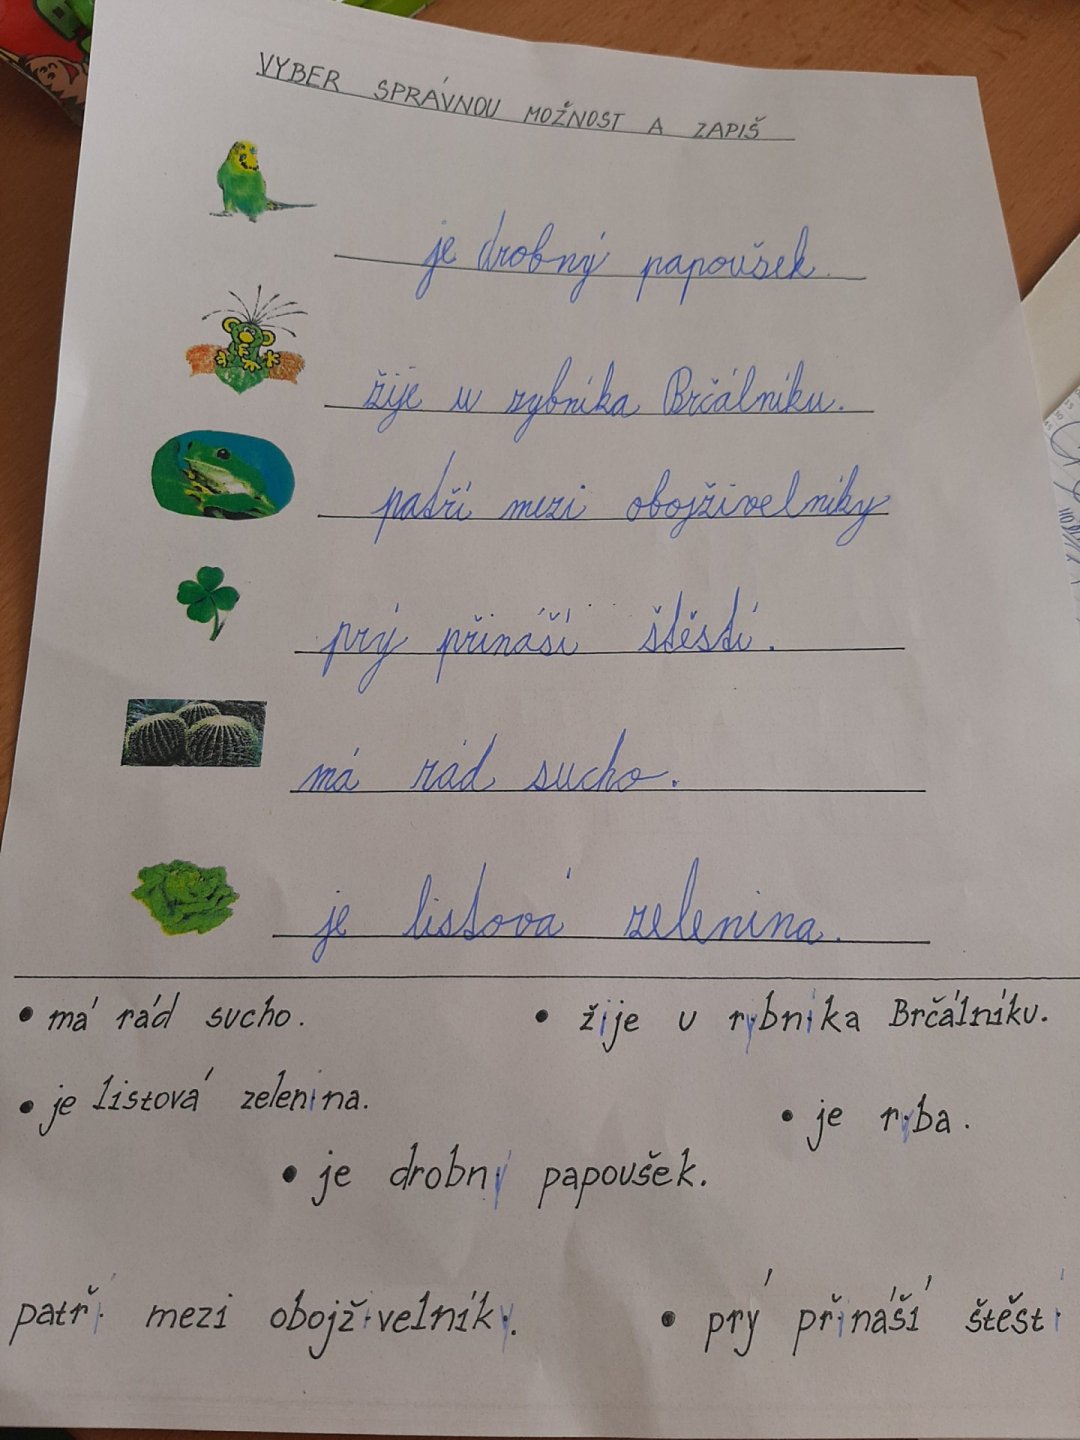 VYBER SPRÁVNOU MOŽNOST A ZAPIŠ
je drobný papoušek.
žije u rybníka Brčálníku.
patří mezi obojživelníky
prý přináší štěstí.
má rád sucho.
je listová zelenina.
• má rád sucho.
• žije u rybníka Brčálníku.
• je listová zelenina.
• je ryba.
• je drobný papoušek.
patří mezi obojživelníky.
• prý přináší štěstí